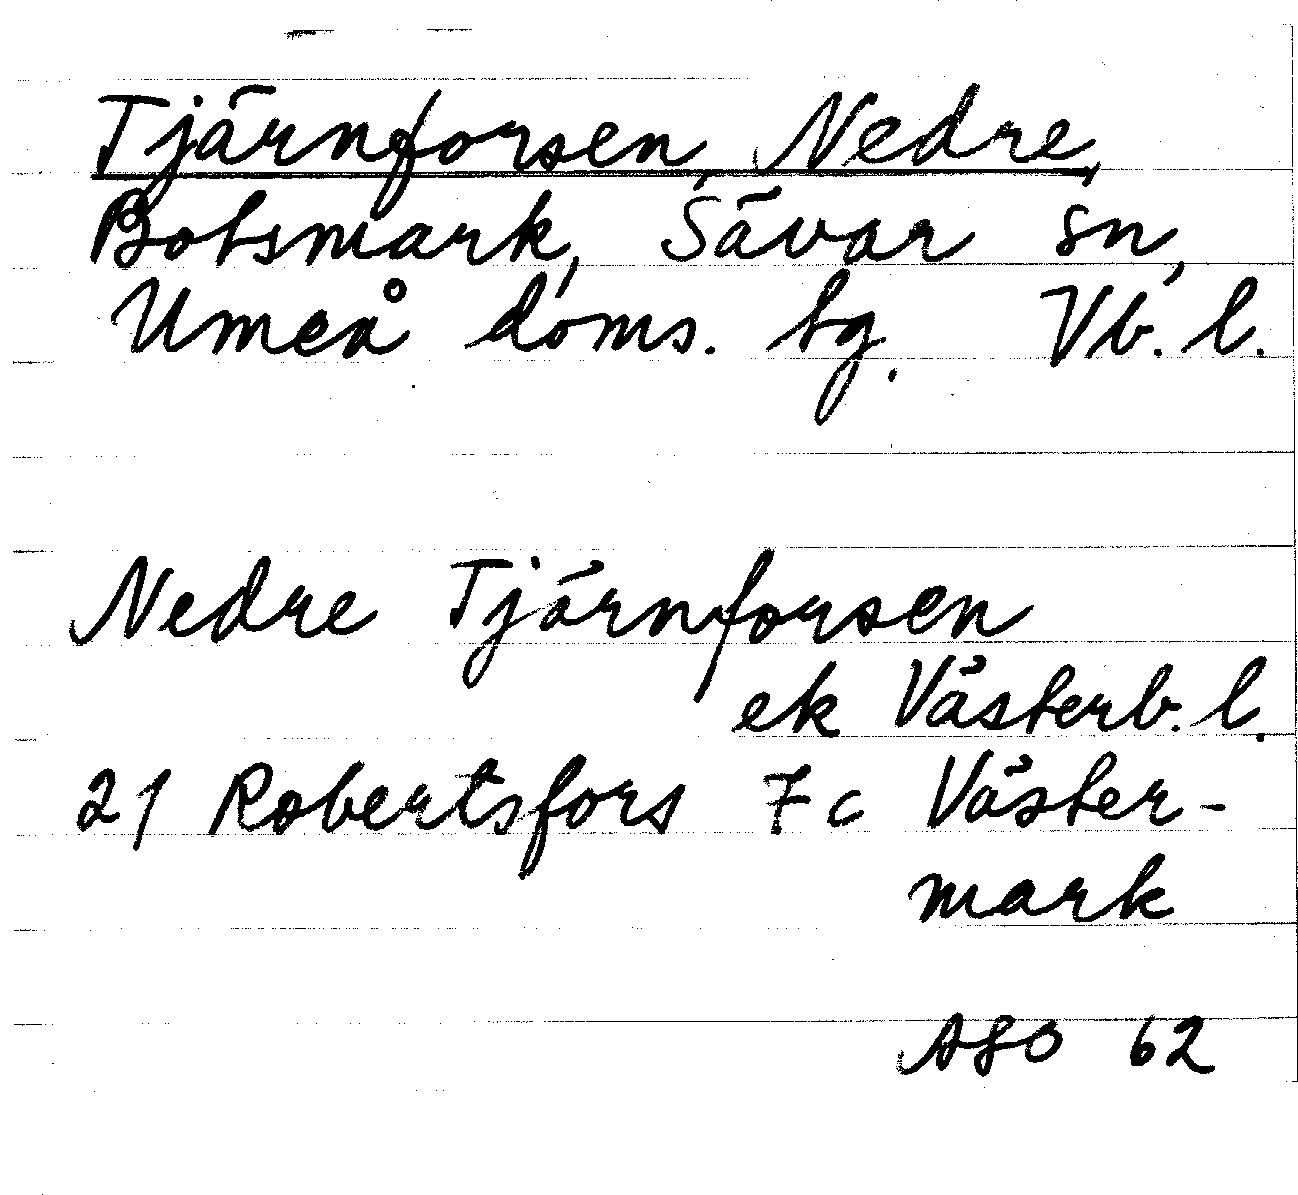 Tjärnforsen, Nedre,
Botsmark, Sävar sn,
Umeå doms. tg. Vb. l.
Nedre Tjärnforsen
ek Västerb. l.
21 Robertsfors 7 c Väster-
mark
ASO 62